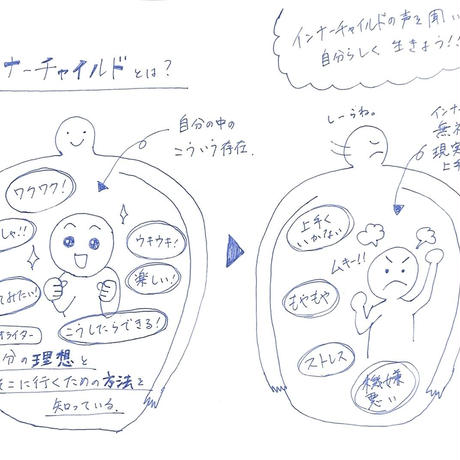 ナーチャイルドとは？
自分の中の
こういう存在.
ワクワク!
しゃ!!
ウキウキ!
てみたい!
楽しい!
ライター
こうしたらできる!
分の理想と
そこに行くための方法を
知っている.
インナーチャイルドの声を聞い
自分らしく 生きよう!!
しーらね。
インナ
無
現実
上手
上手く
いかない
ムキー!!
もやもや
ストレス
機嫌
悪い